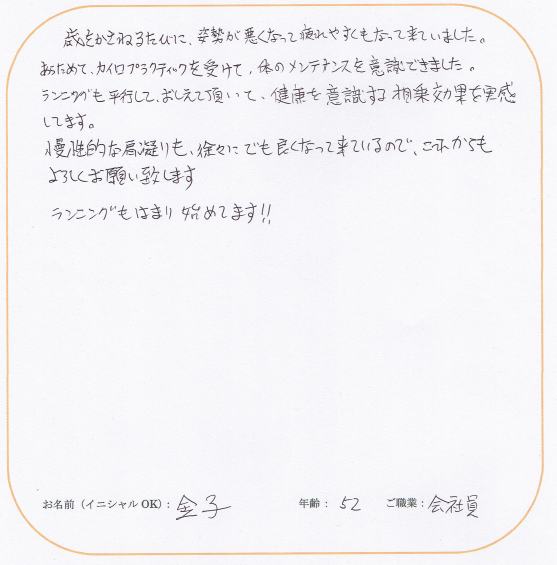 歳をかさねるたびに、姿勢が悪くなって疲れやすくもなって来ていました。
あらためて、カイロプラクティックを受けて、体のメンテナンスを意識できました。
ランニングも平行して、おしえて頂いて、健康を意識する相乗効果を実感
してます。
慢性的な肩凝りも、徐々にでも良くなって来ているので、これからも
よろしくお願い致します
ランニングもはまり始めてます!!
お名前（イニシャルOK）： 金子 年齢： 52 ご職業： 会社員